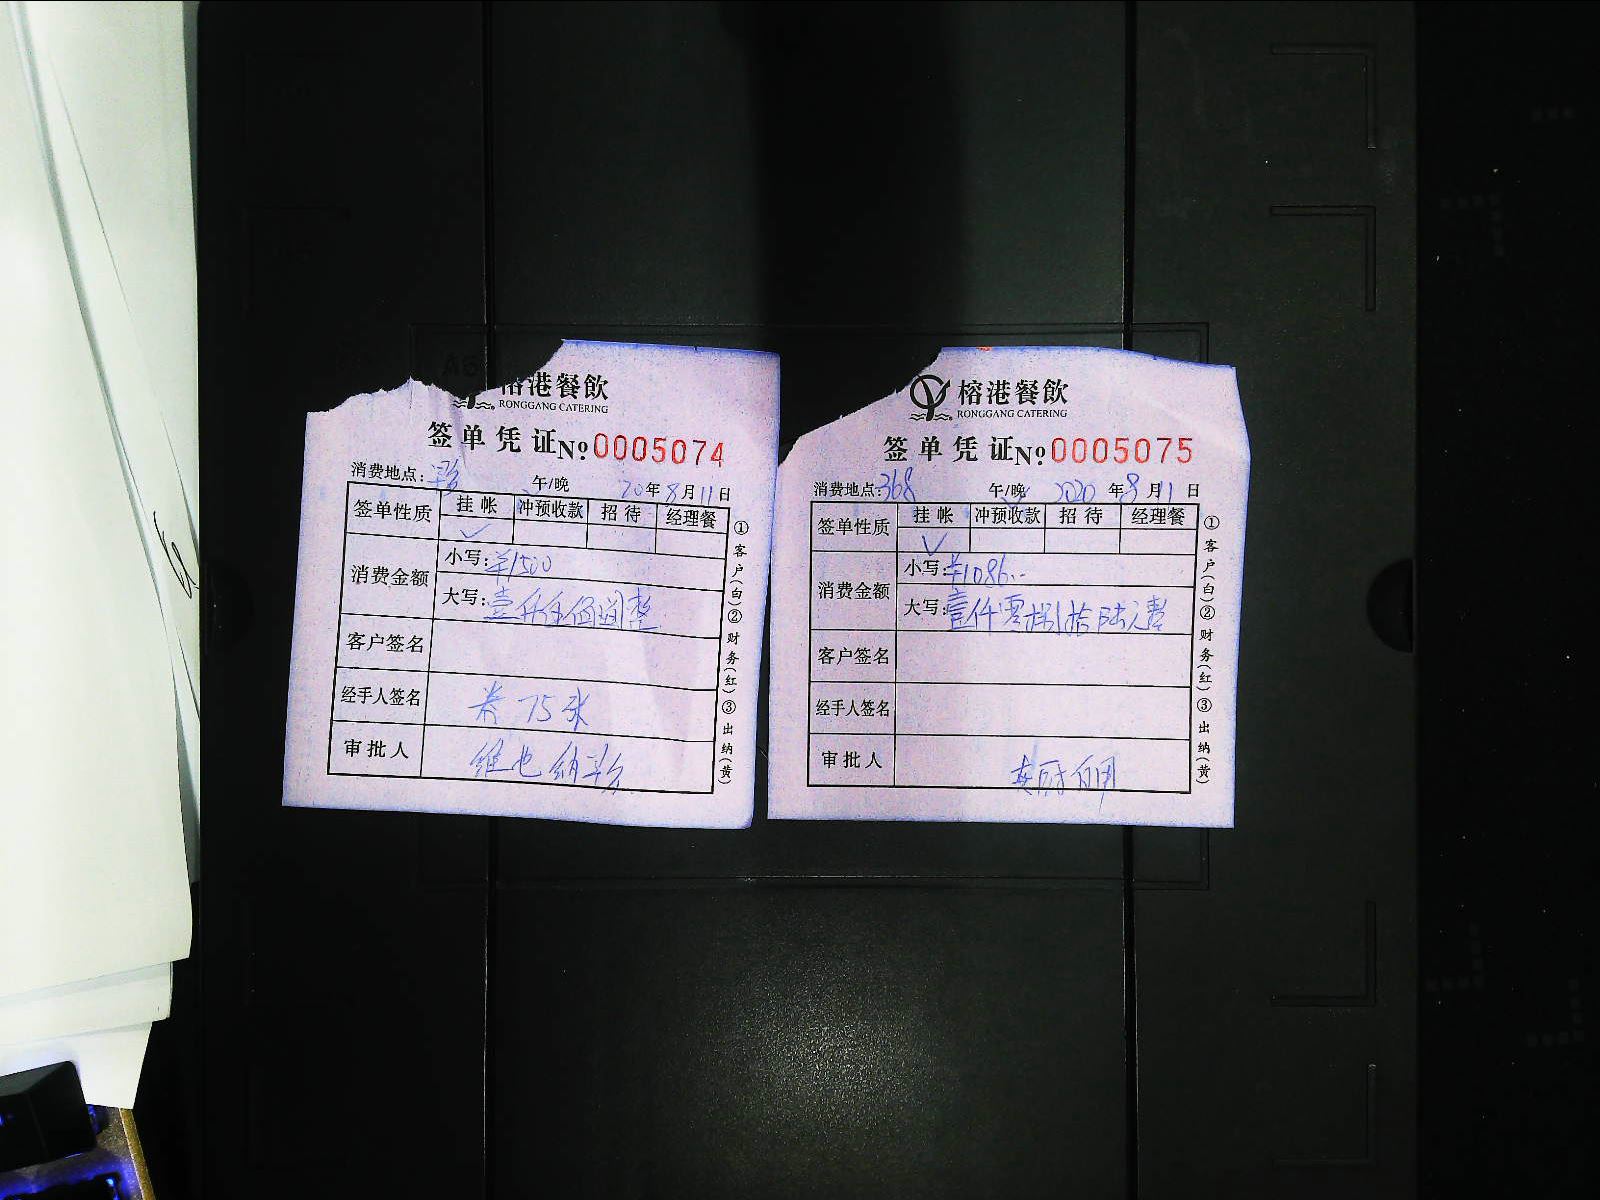 榕港餐飲
RONGGANG CATERING
签单凭证 No.0005074
消费地点: 午/晚 20年8月11日
签单性质 挂帐 冲预收款 招待 经理餐
✓
消费金额 小写:¥1500
大写:壹仟伍佰圆整
客户签名
经手人签名 券75张
审批人 维也纳
①客户(白)②财务(红)③出纳(黄)
榕港餐飲
RONGGANG CATERING
签单凭证 No.0005075
消费地点:368 午/晚 2020年8月11日
签单性质 挂帐 冲预收款 招待 经理餐
✓
消费金额 小写:¥1086..
大写:壹仟零捌拾陆元整
客户签名
经手人签名
审批人
①客户(白)②财务(红)③出纳(黄)
A6